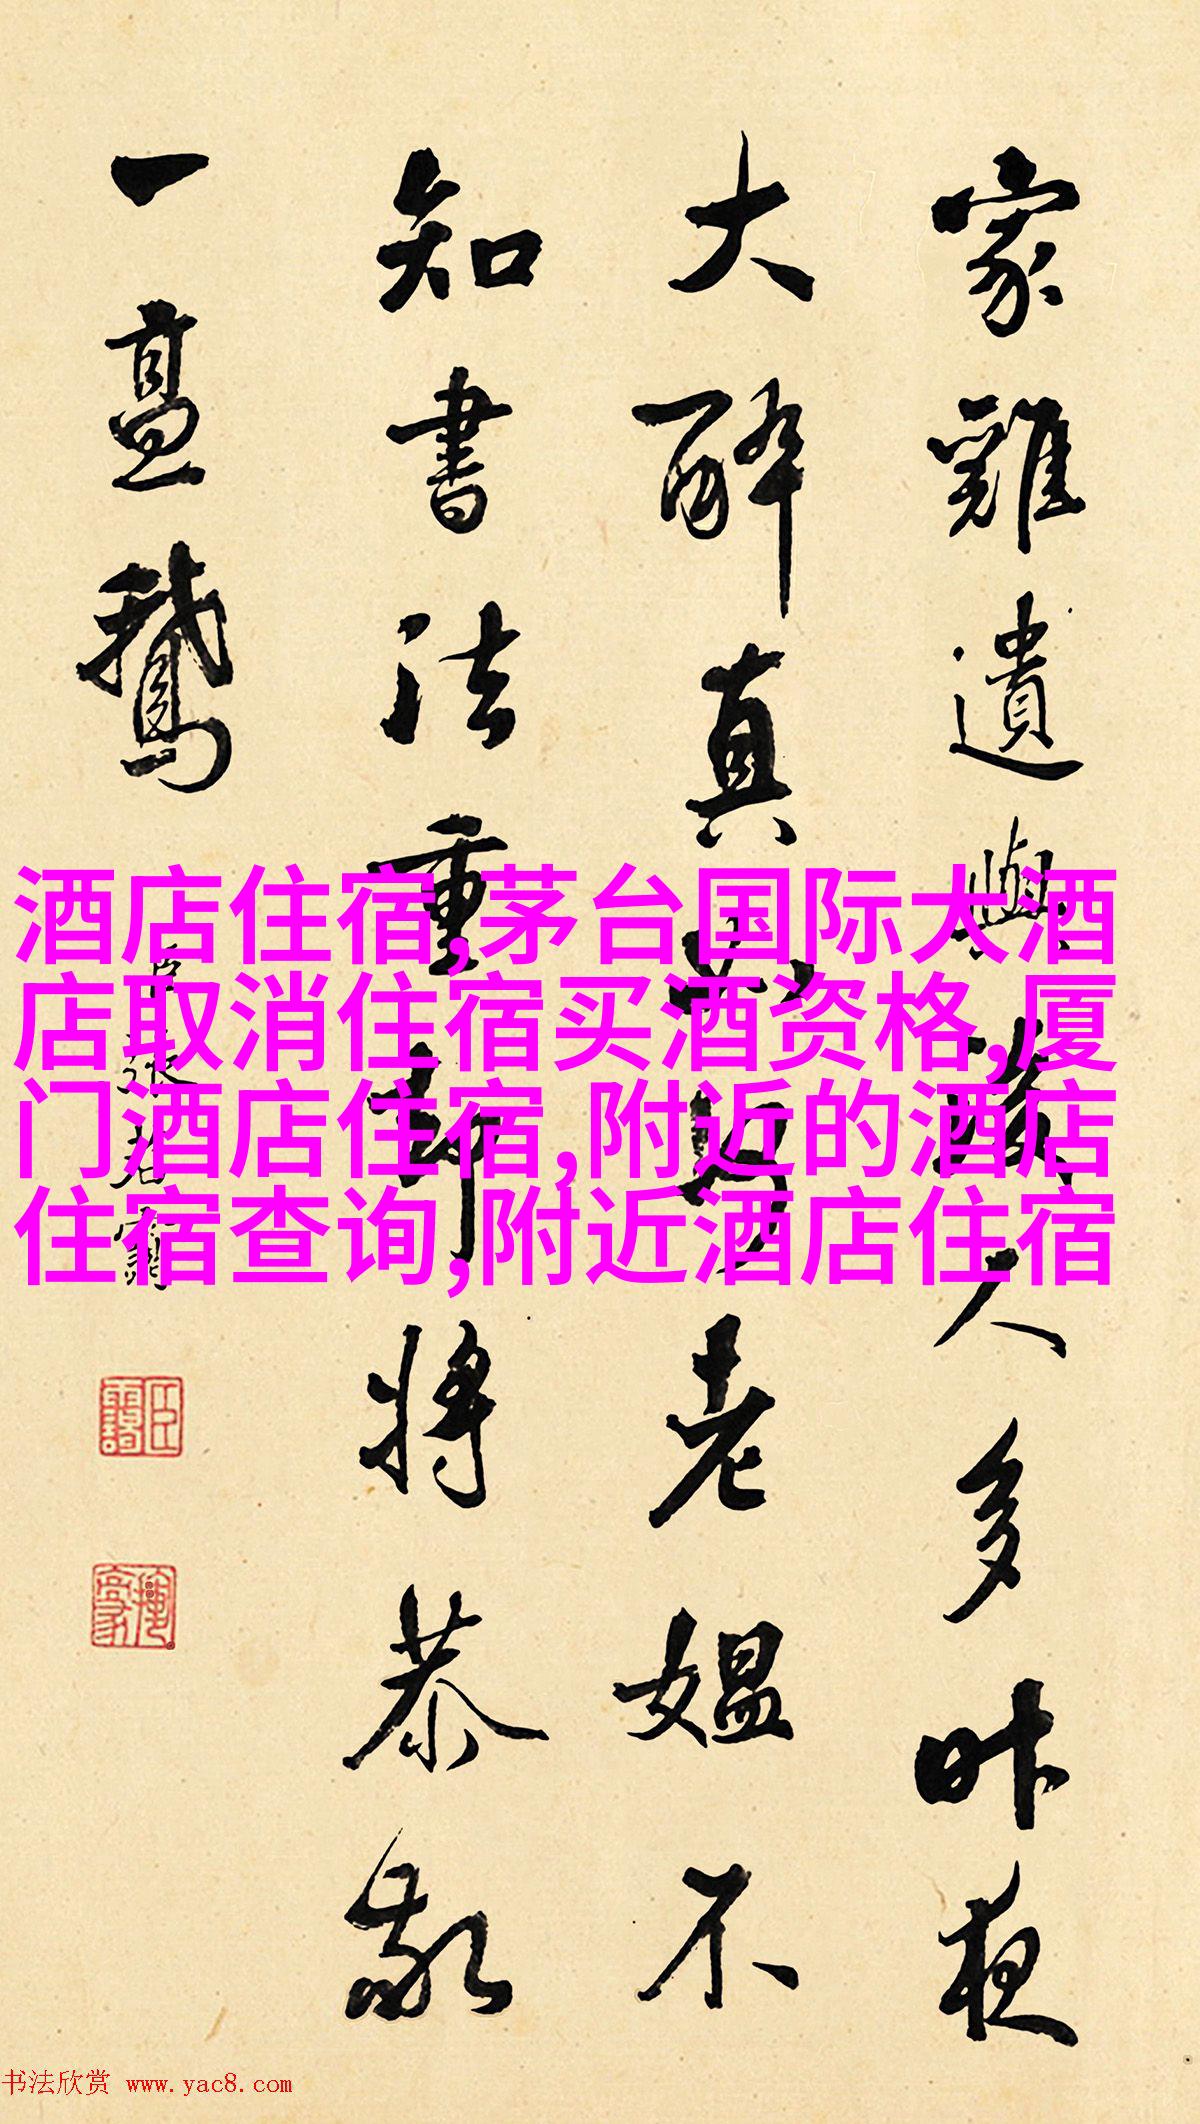 家雞遺與人多昨夜
大醉真老媼不
知書法重却將恭敬
一鵝
臣張若靄
酒店住宿,茅台国际大酒
店取消住宿买酒资格,厦
门酒店住宿,附近的酒店
住宿查询,附近酒店住宿
书法欣赏 www.yac8.com